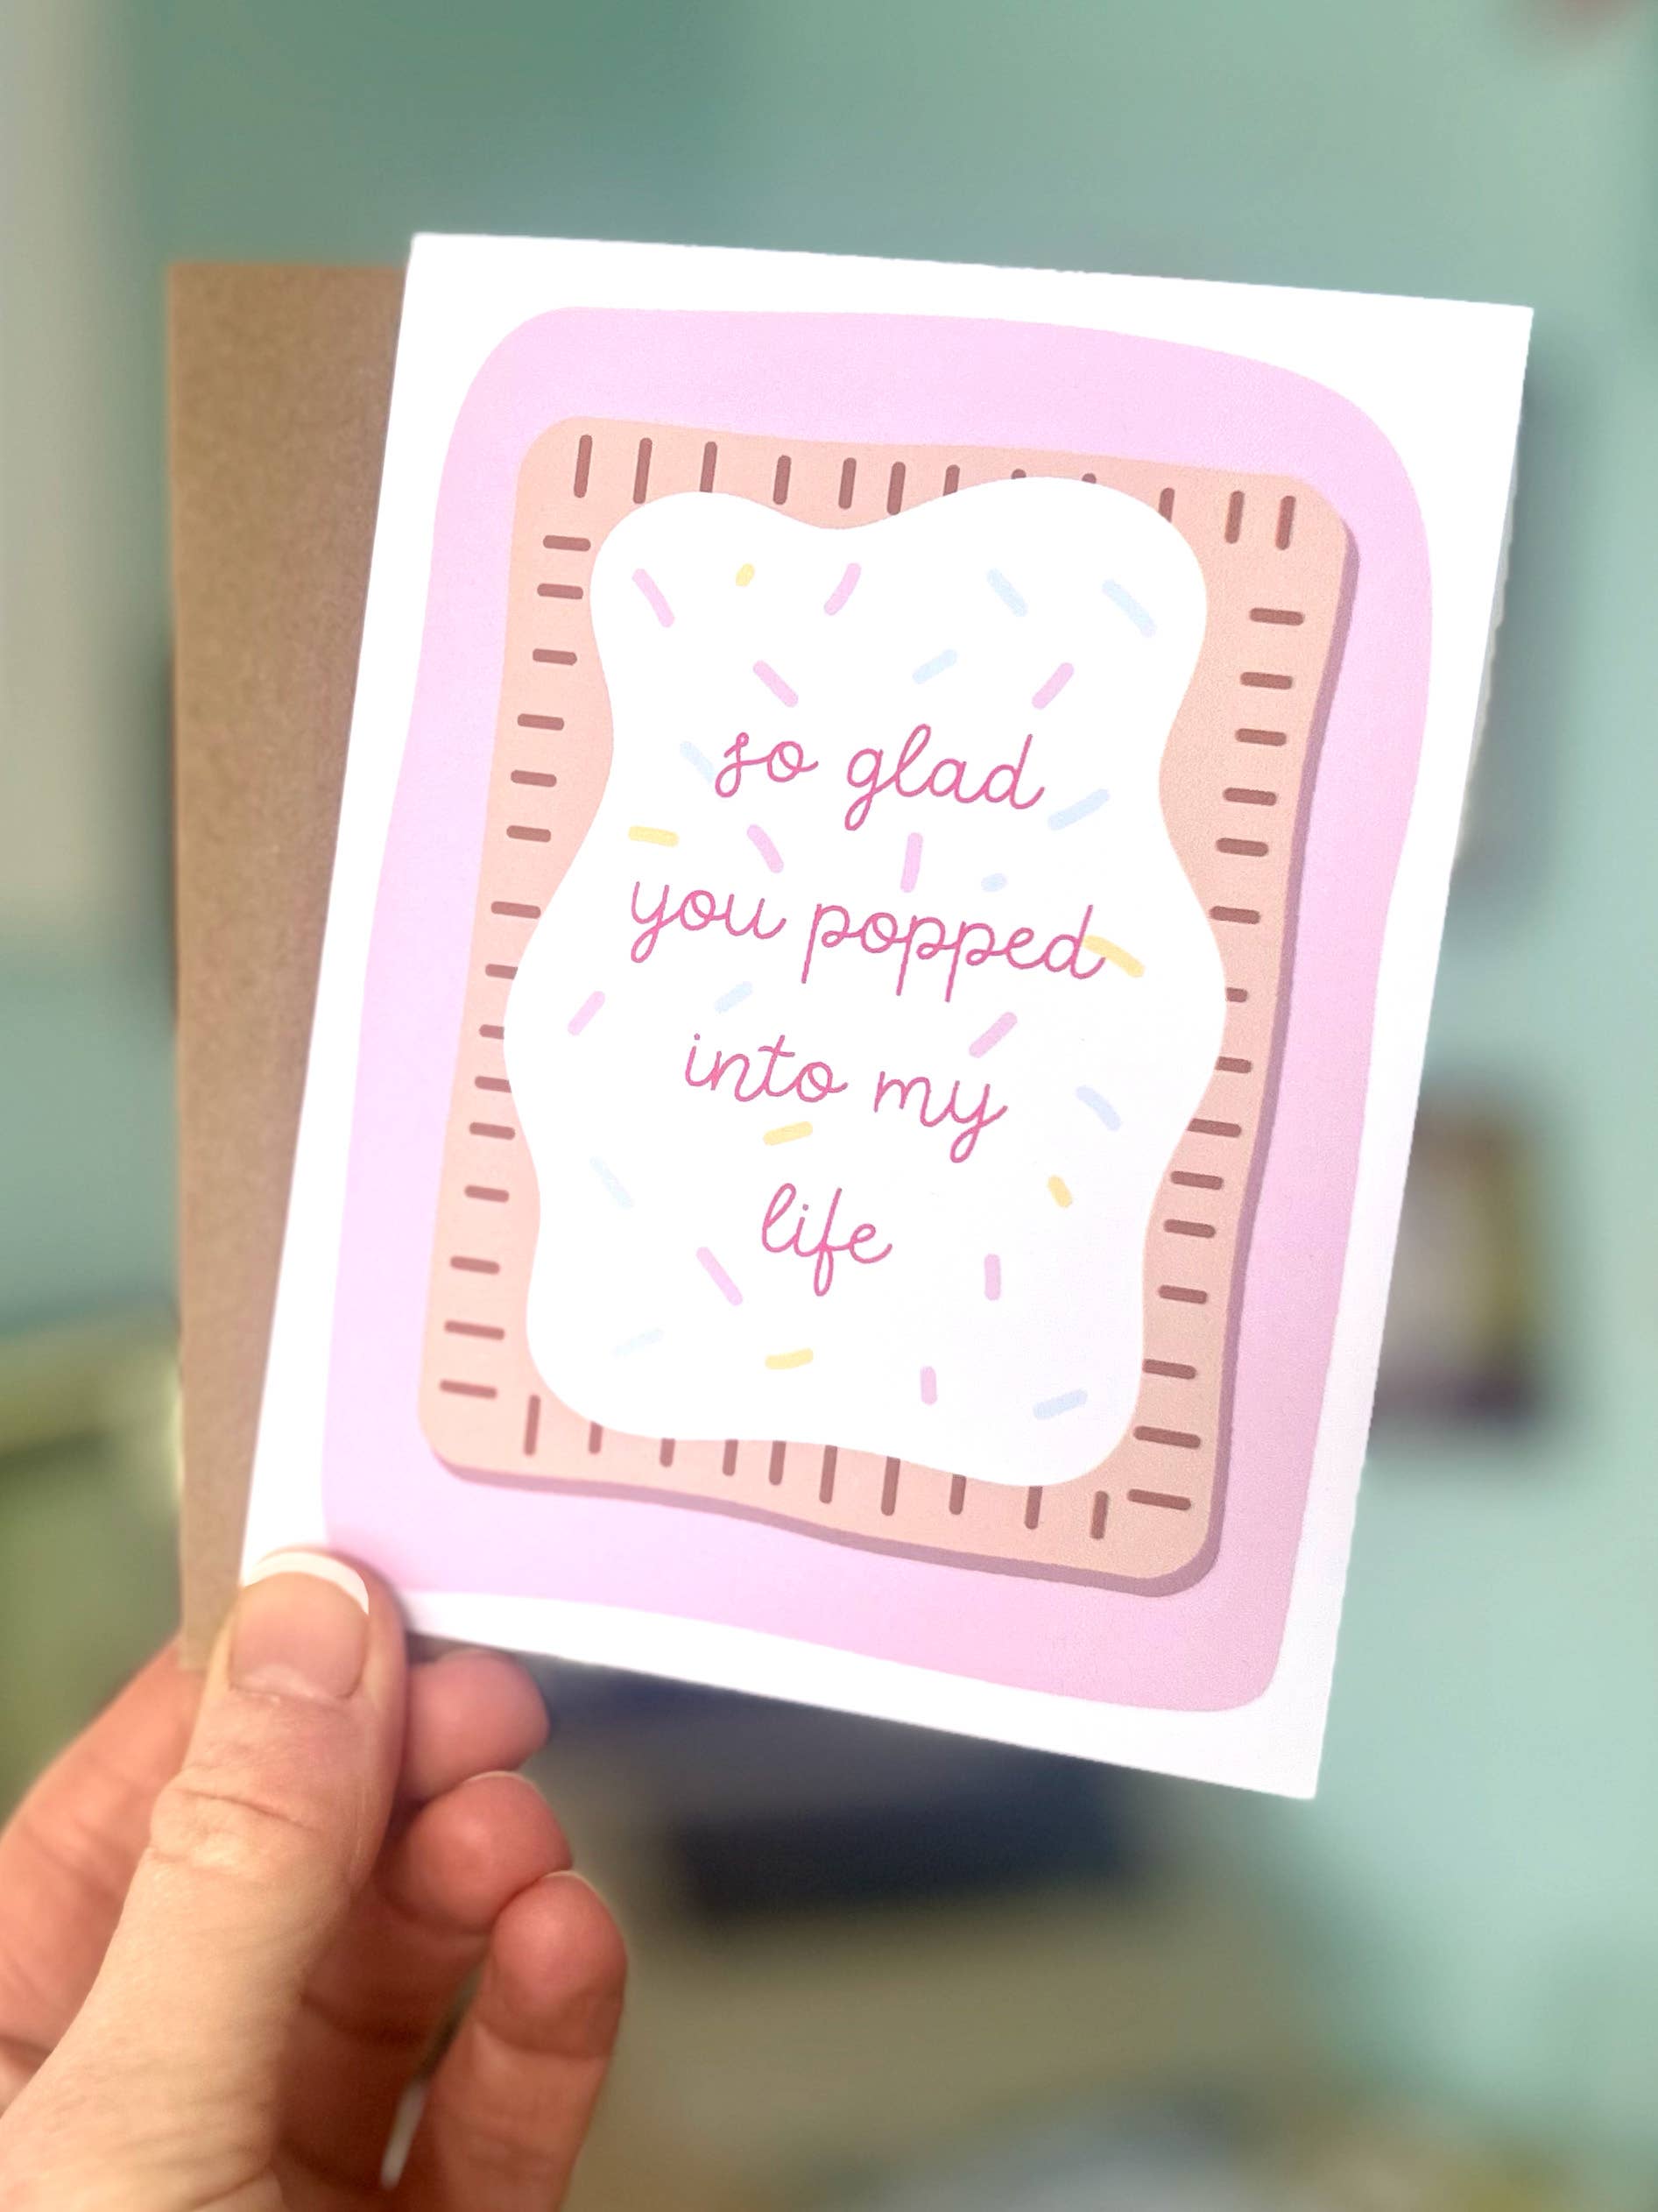 so glad
you popped
into my
life